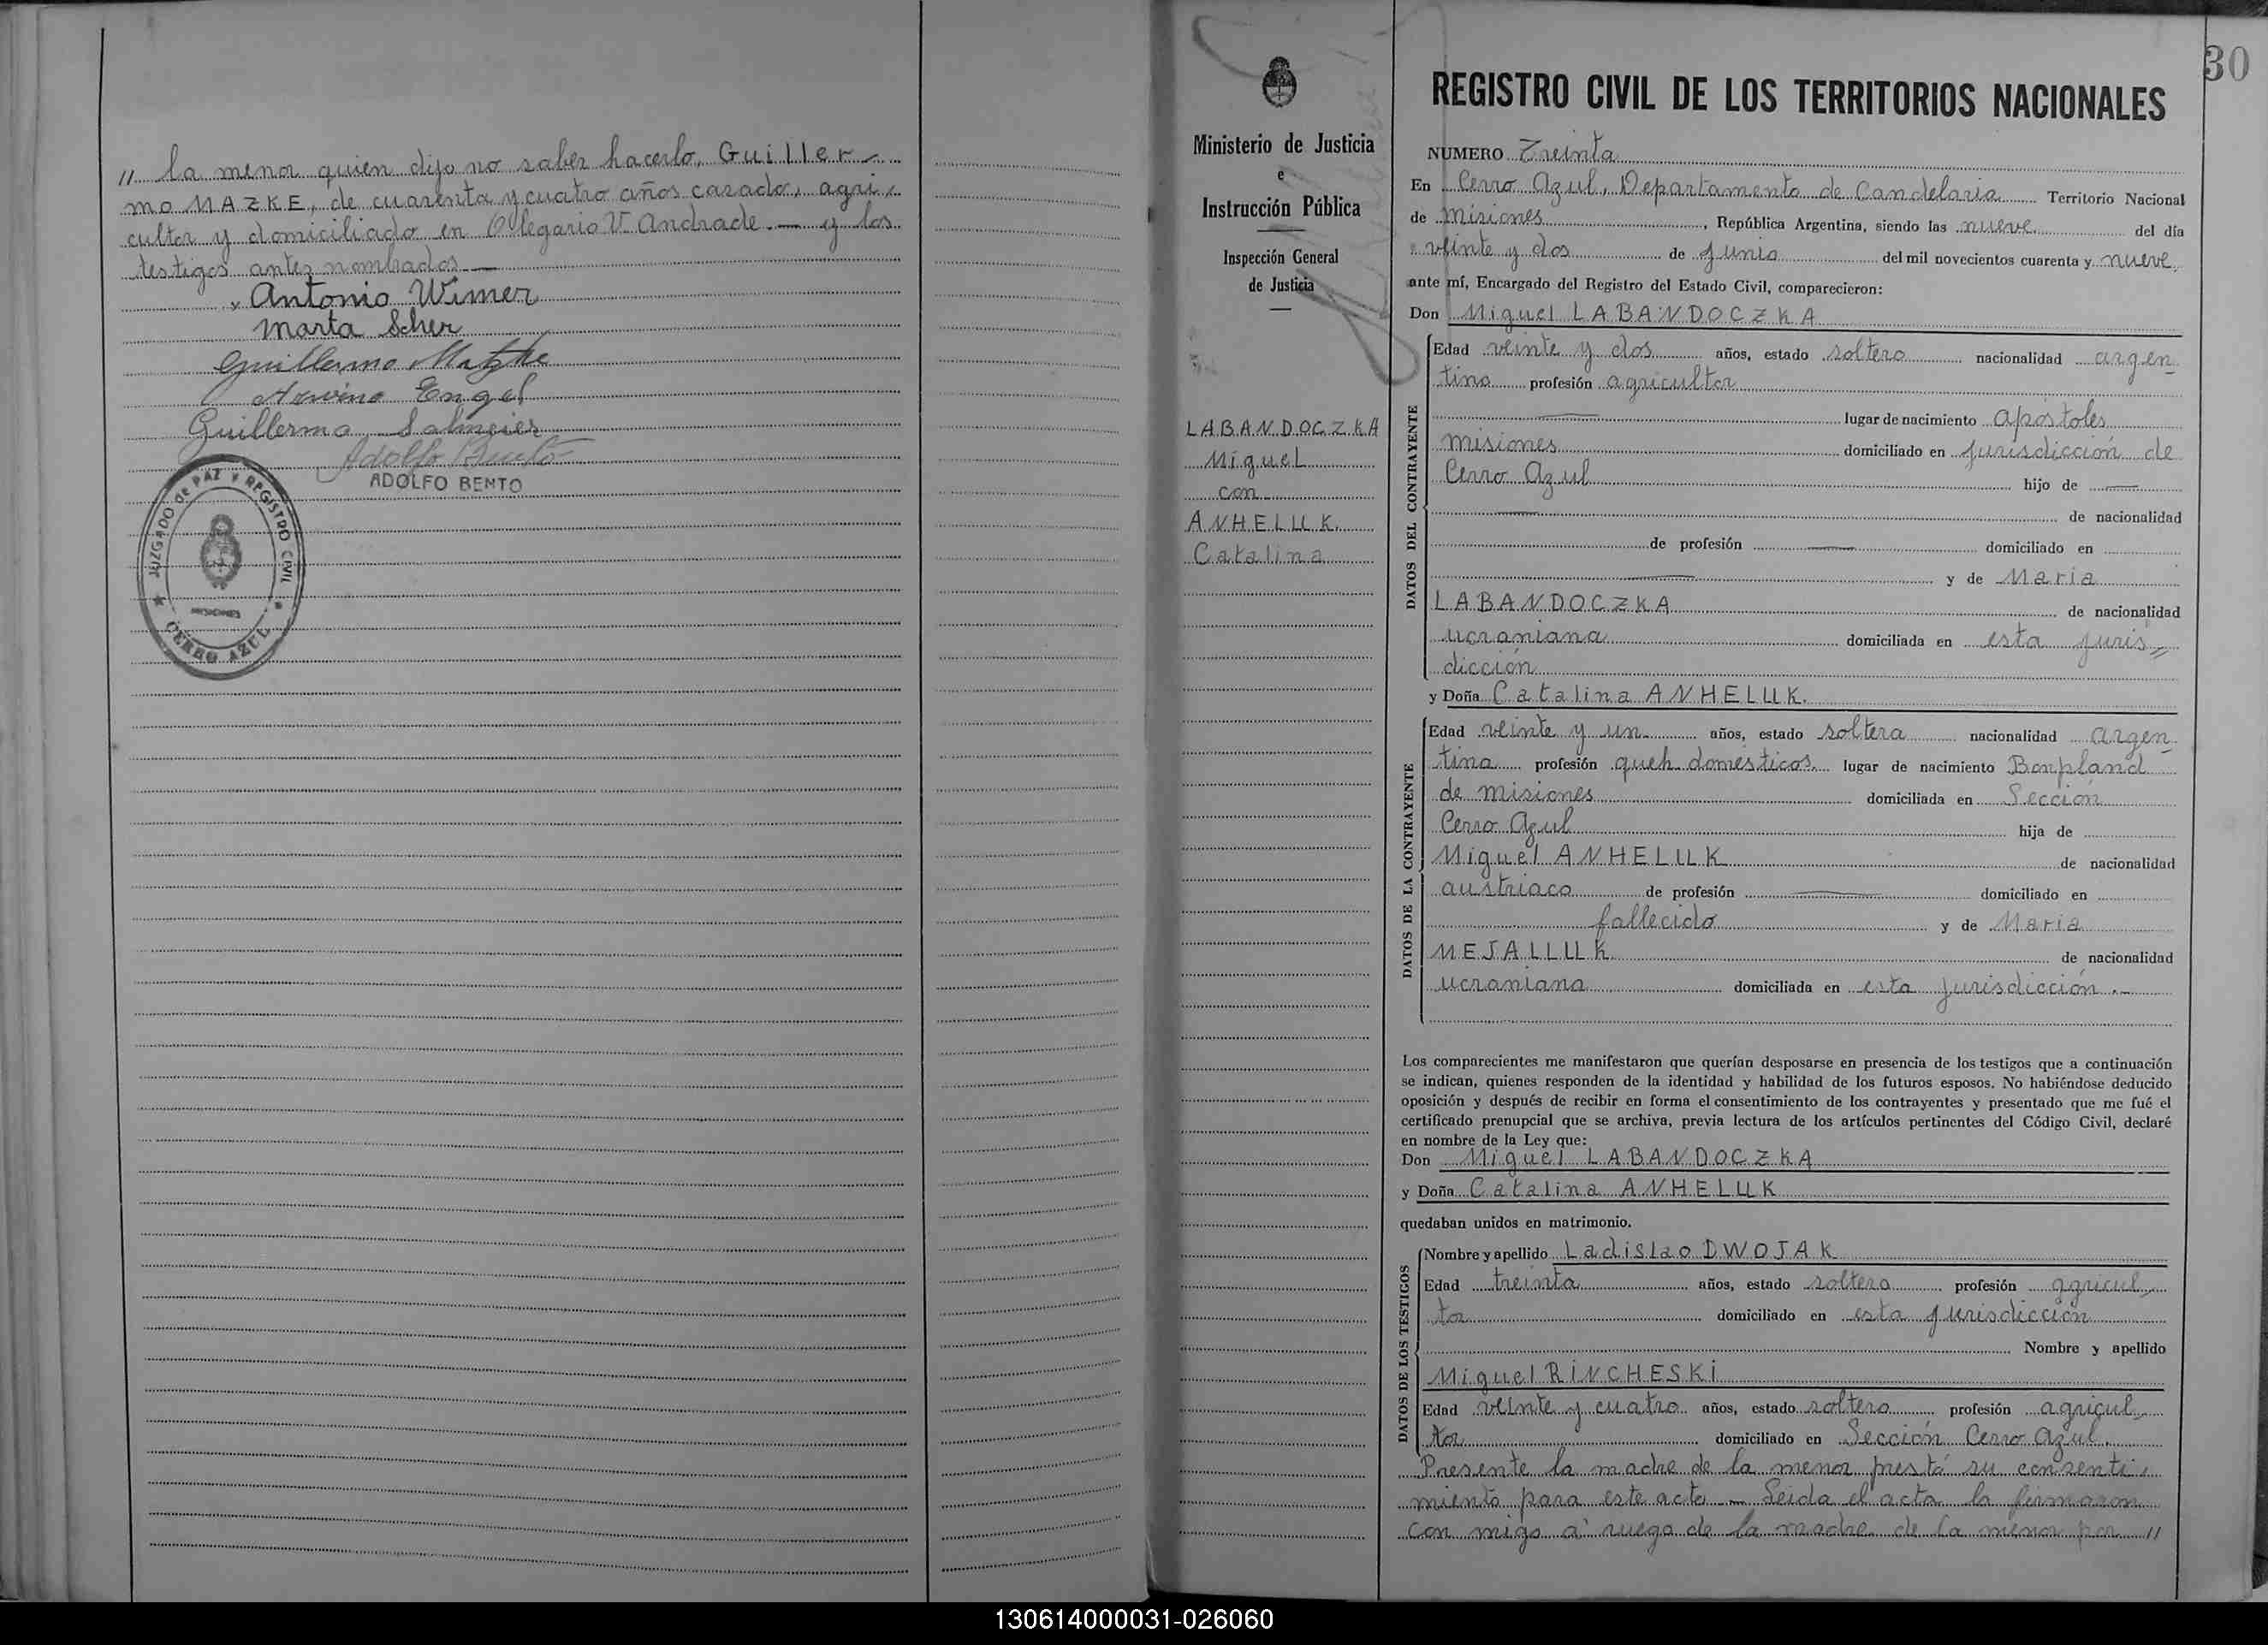 " la menor quien dijo no saber hacerlo, Guiller-
mo MAZKE, de cuarenta y cuatro años casado, agri-
cultor y domiciliado en Olegario V. Andrade.— y los
testigos antes nombrados—
Antonio Wimer
Marta Scher
Guillermo Matzke
Arvino Engel
Guillermo Salmeier
Adolfo Bento
ADOLFO BENTO
JUZGADO DE PAZ Y REGISTRO CIVIL
MISIONES
★ CERRO AZUL ★
30
Ministerio de Justicia
e
Instrucción Pública
Inspección General
de Justicia
LABANDOCZKA
Miguel
con
ANHELUK
Catalina
REGISTRO CIVIL DE LOS TERRITORIOS NACIONALES
NUMERO Treinta
En Cerro Azul, Departamento de Candelaria Territorio Nacional
de Misiones, República Argentina, siendo las nueve del día
veinte y dos de Junio del mil novecientos cuarenta y nueve,
ante mí, Encargado del Registro del Estado Civil, comparecieron:
Don Miguel LABANDOCZKA
DATOS DEL CONTRAYENTE
Edad veinte y dos años, estado soltero nacionalidad argen-
tino profesión agricultor
lugar de nacimiento Apóstoles
Misiones domiciliado en jurisdicción de
Cerro Azul hijo de —
— de nacionalidad
de profesión — domiciliado en
— y de Maria
LABANDOCZKA de nacionalidad
ucraniana domiciliada en esta juris-
dicción
y Doña Catalina ANHELUK.
DATOS DE LA CONTRAYENTE
Edad veinte y un años, estado soltera nacionalidad argen-
tina profesión queh. domésticos lugar de nacimiento Bonpland
de Misiones domiciliada en Sección
Cerro Azul hija de
Miguel ANHELUK de nacionalidad
austriaco de profesión — domiciliado en
fallecido y de Maria
MEJALLUK de nacionalidad
ucraniana domiciliada en esta jurisdicción.—
Los comparecientes me manifestaron que querían desposarse en presencia de los testigos que a continuación
se indican, quienes responden de la identidad y habilidad de los futuros esposos. No habiéndose deducido
oposición y después de recibir en forma el consentimiento de los contrayentes y presentado que me fué el
certificado prenupcial que se archiva, previa lectura de los artículos pertinentes del Código Civil, declaré
en nombre de la Ley que:
Don Miguel LABANDOCZKA
y Doña Catalina ANHELUK
quedaban unidos en matrimonio.
DATOS DE LOS TESTIGOS
Nombre y apellido Ladislao DWOJAK
Edad treinta años, estado soltero profesión agricul-
tor domiciliado en esta jurisdicción
Nombre y apellido
Miguel RINCHESKI
Edad veinte y cuatro años, estado soltero profesión agricul-
tor domiciliado en Sección Cerro Azul.
Presente la madre de la menor prestó su consenti-
miento para este acto.— Leida el acta la firmaron
con migo a ruego de la madre de la menor por "
130614000031-026060